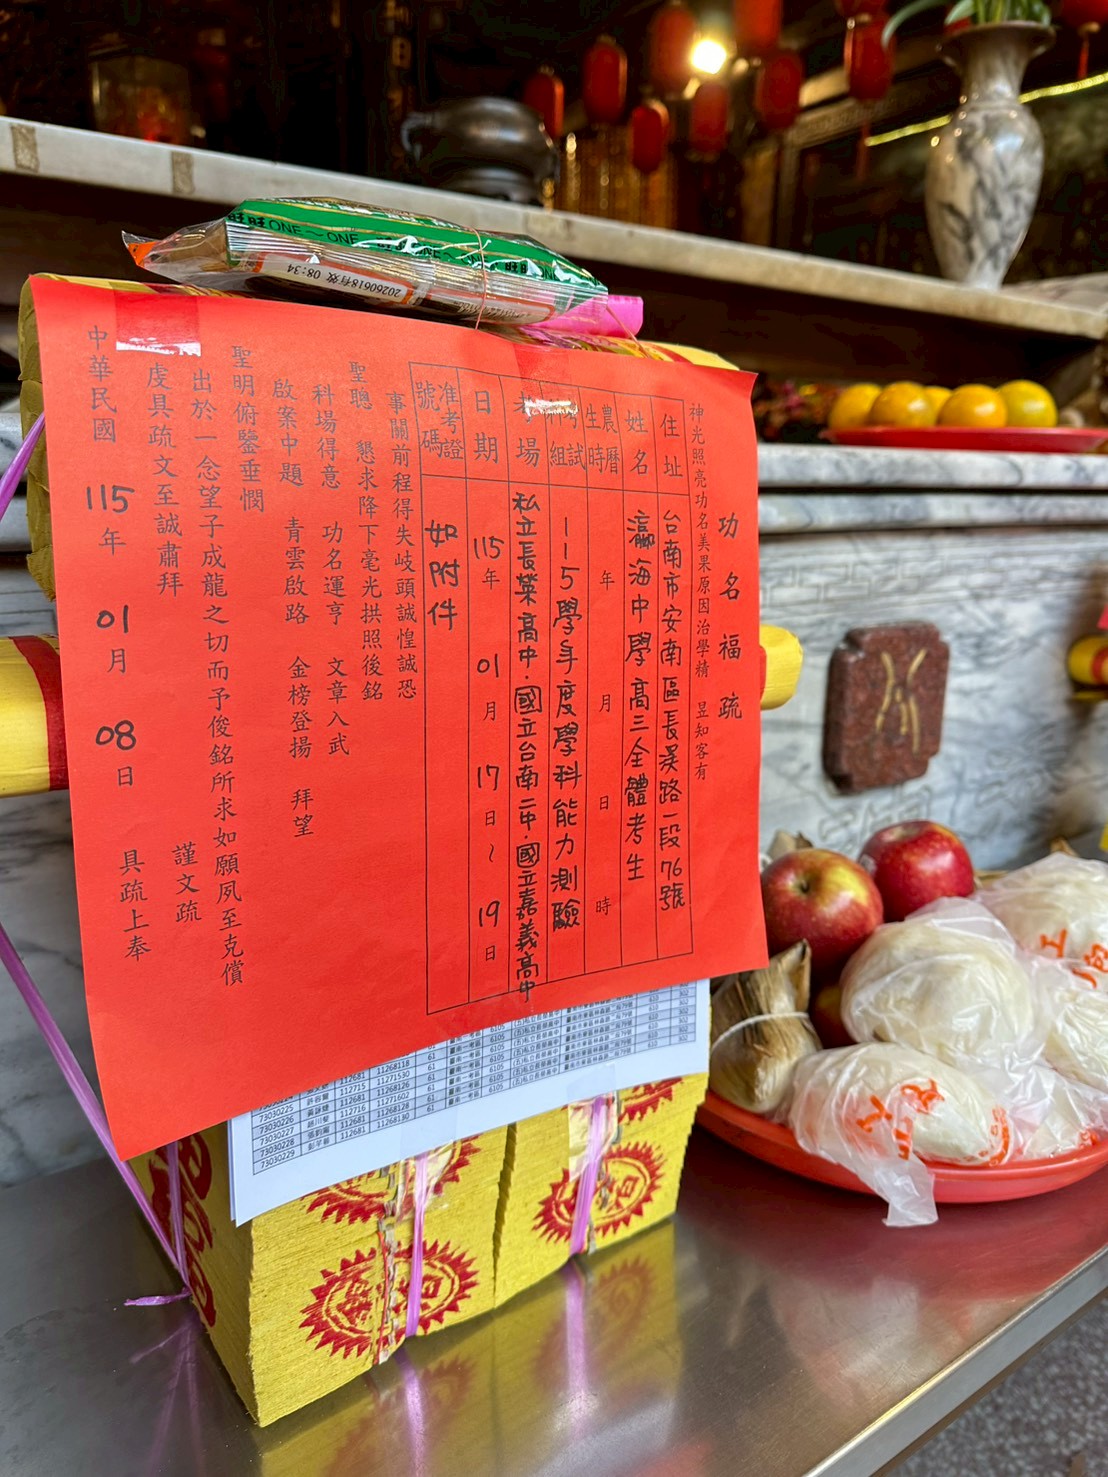 功名福疏
神光照亮功名美果原因治學精 昱知客有
住址 台南市安南區長溪路一段76號
姓名 瀛海中學高三全體考生
農曆生時 年 月 日 時
考試科組 115學年度學科能力測驗
考場 私立長榮高中.國立台南二中.國立嘉義高中
日期 115年 01月 17日~19日
准考證號碼 如附件
事關前程得失岐頭誠惶誠恐
聖聰 懇求降下毫光拱照後銘
科場得意 功名運亨 文章入武
啟案中題 青雲啟路 金榜登揚 拜望
聖明俯鑒垂憫
出於一念望子成龍之切而予俊銘所求如願夙至克償
虔具疏文至誠肅拜 謹文疏
中華民國 115年 01月 08日 具疏上奉
旺旺 ONE~ONE
20260618有效 08:34
73030225
73030226
73030227
73030228
73030229